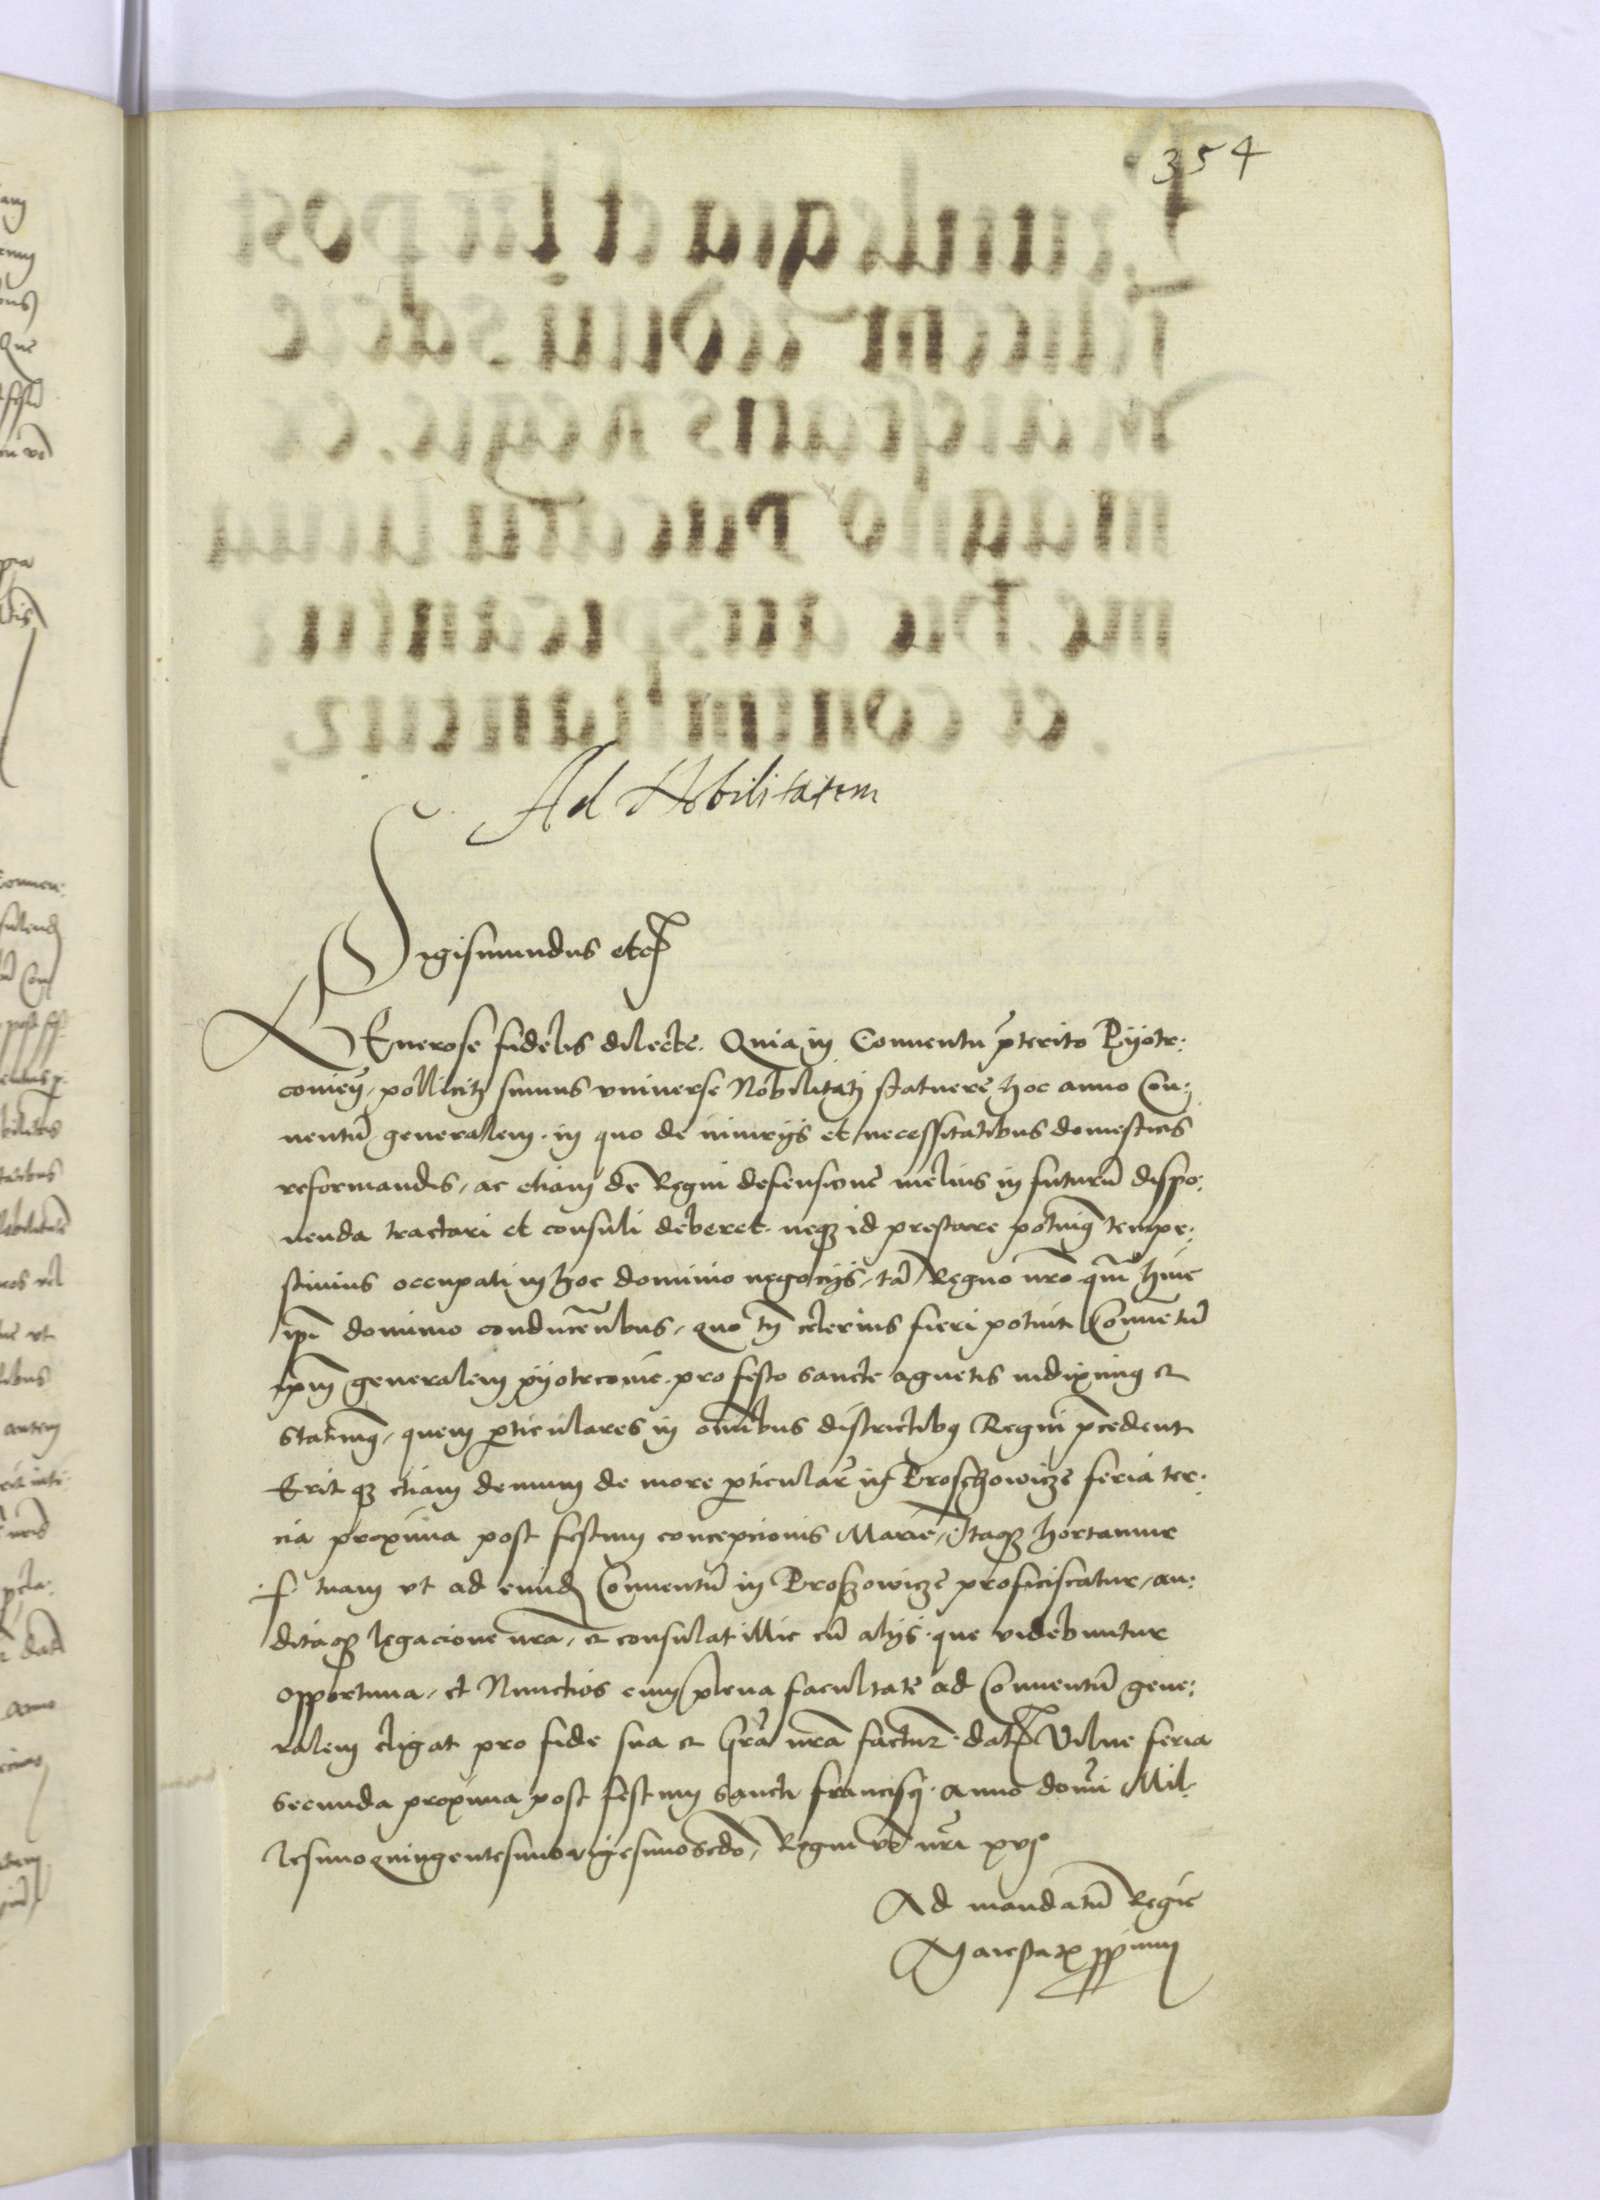 354
Ad Nobilitatem
Sigismundus etc
GEnerose fidelis dilecte. Quia in Conuentu p̃terito Pyotr:
couieñ, polliciti sumus vniuerse Nobilitati statuere hoc anno Con:
uentũ generalem. in quo de iniurijs et necessitatibus domesticis
reformandis, ac etiam de Regni defensione melius in futurũ dispo:
nenda tractari et consuli deberet. neqʒ id prestare potuimꝰ tempe:
stiuius occupati in hoc dominio negocijs, tã Regno nr̃o qũ huic
ip̃i dominio conducẽtibus, quo tñ celerius fieri potuit Conuẽtũ
ip̃m generalem pyotrcouie. pro festo sancte agnetis indiximꝰ et
statuimꝰ, quem p̱ticulares in oĩbus districtibꝰ Regni p̃cedent
Erit qʒ etiam demum de more p̱ticularẽ in Proschowicze feria ter:
cia proxima post festum concepcionis Marie, Itaqʒ hortamur
f tuam vt ad eund Conuentũ in Proszowicze proficiscatur, au:
ditaqʒ legacione nr̃a, et consulat illic cũ alijs. que videbuntur
opportuna, et Nunctios cum plena facultate ad Conuentũ gene:
ralem eligat pro fide sua et gr̃a nr̃a facturꝰ. dat Vilne feria
secunda proxima post festum sancti francisci. anno domi Mil
lesimoquingentesimovigesimosecdo, Regni vo nr̃i xvjº
Ad mandatũ Regie
Maiestatis pprium